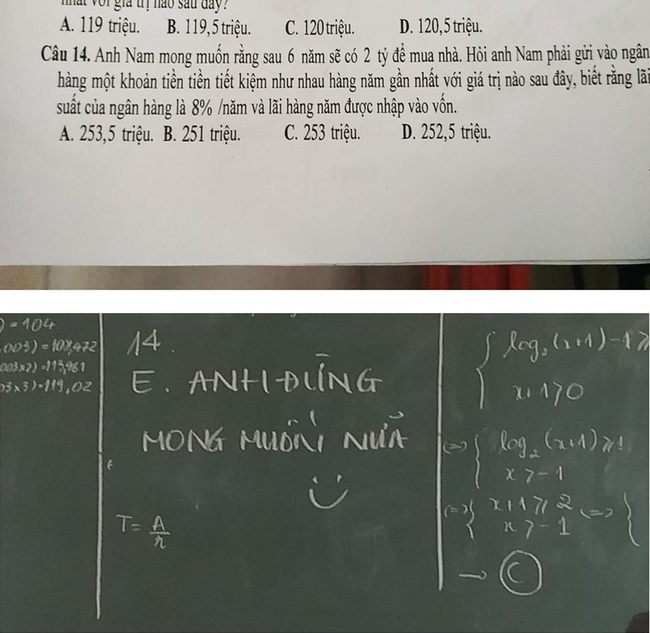 nhất với giá trị nào sau đây?
A. 119 triệu. B. 119,5 triệu. C. 120 triệu. D. 120,5 triệu.
Câu 14. Anh Nam mong muốn rằng sau 6 năm sẽ có 2 tỷ để mua nhà. Hỏi anh Nam phải gửi vào ngân
hàng một khoản tiền tiền tiết kiệm như nhau hàng năm gần nhất với giá trị nào sau đây, biết rằng lãi
suất của ngân hàng là 8% /năm và lãi hàng năm được nhập vào vốn.
A. 253,5 triệu. B. 251 triệu. C. 253 triệu. D. 252,5 triệu.
) = 104
003) = 108,472
003x2) = 113,961
03x3) = 119,02
14.
E. ANH ĐỪNG
MONG MUỐN NỮA
T = A/r
{ log₂(x+1) - 1 ≥
x+1 > 0
<=> { log₂(x+1) ≥ 1
x > -1
<=> { x+1 ≥ 2 <=> {
x > -1
→ C